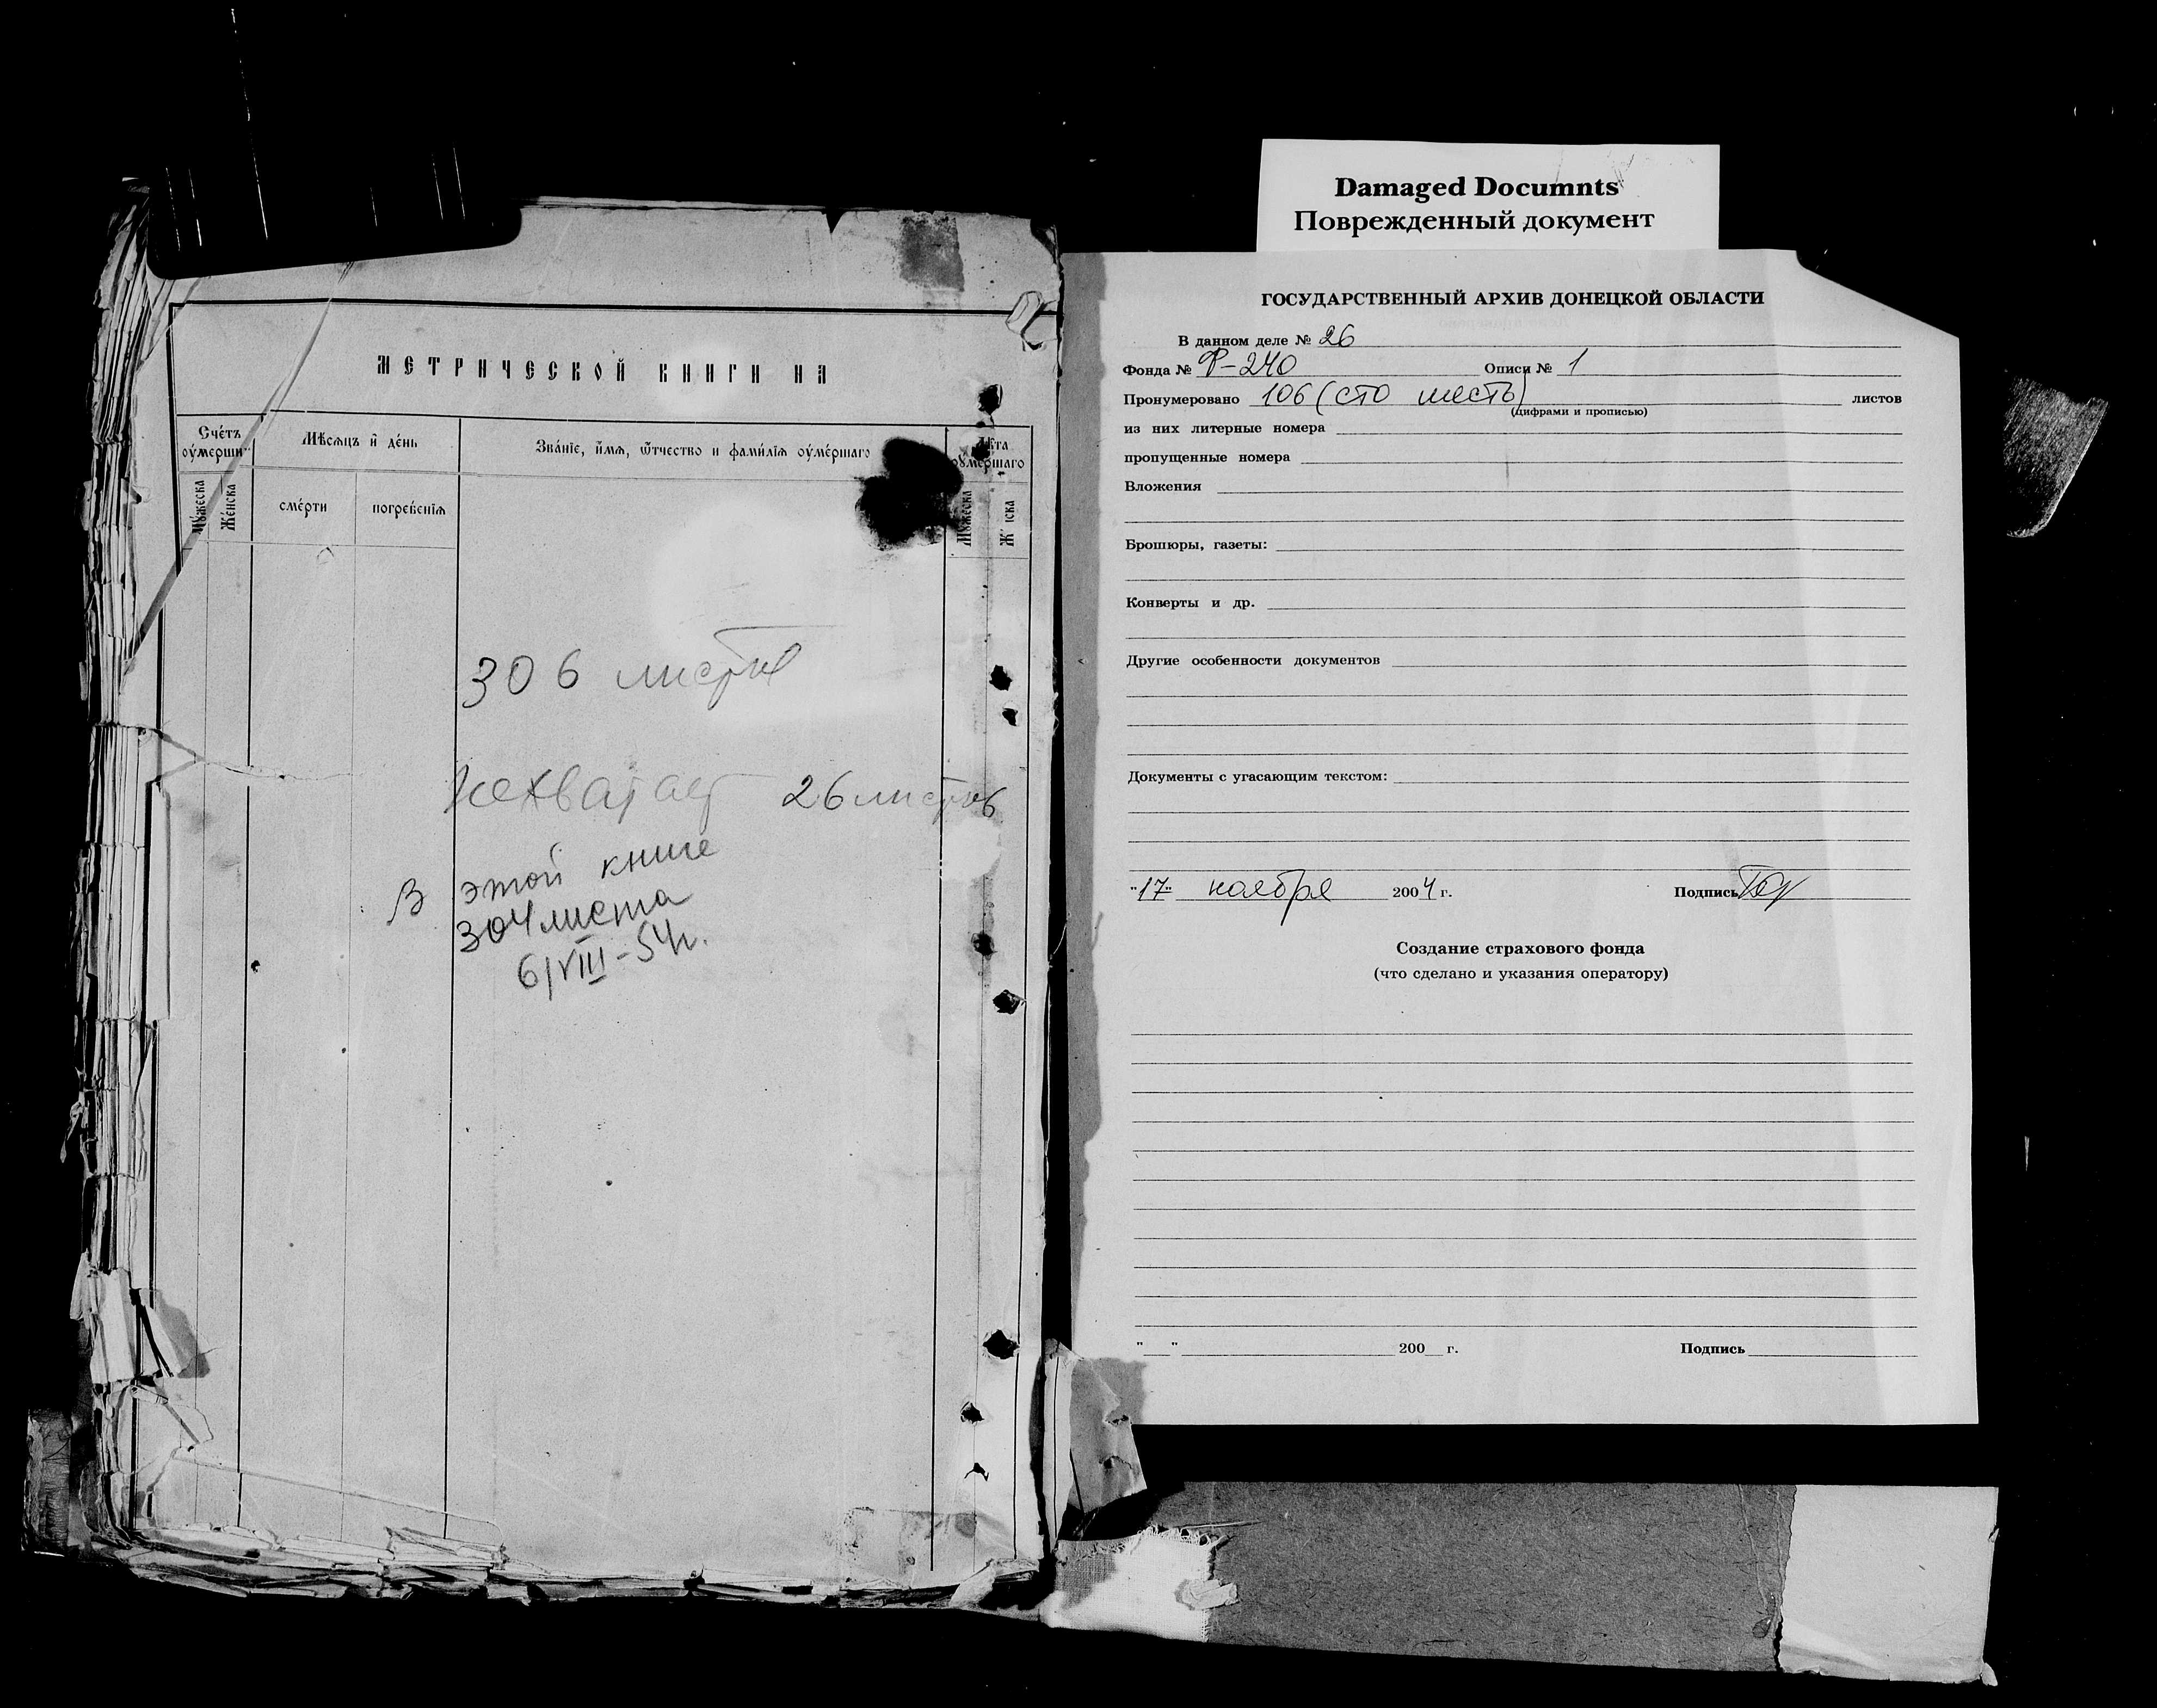 МЕТРИЧЕСКОЙ КНИГИ НА
Счéтъ оу҆мерши
Мѣсѧцъ и҆ дéнь
Звáнїе, и҆́мѧ, ѿ́чество и фами́лїѧ оу҆мéршагѡ
Лѣ́та оу҆мéршагѡ
Мýжеска
Жéнска
смéрти
погребéнїѧ
Мýжеска
Ж ска
306 листов
нехватает 26 листов
В этой книге
304 листа
6/VIII-54г.
Damaged Documnts
Поврежденный документ
ГОСУДАРСТВЕННЫЙ АРХИВ ДОНЕЦКОЙ ОБЛАСТИ
В данном деле № 26
Фонда № Р-240 Описи № 1
Пронумеровано 106 (сто шесть) листов
(цифрами и прописью)
из них литерные номера
пропущенные номера
Вложения
Брошюры, газеты:
Конверты и др.
Другие особенности документов
Документы с угасающим текстом:
"17" ноября 2004 г. Подпись
Создание страхового фонда
(что сделано и указания оператору)
"__" 200__ г. Подпись